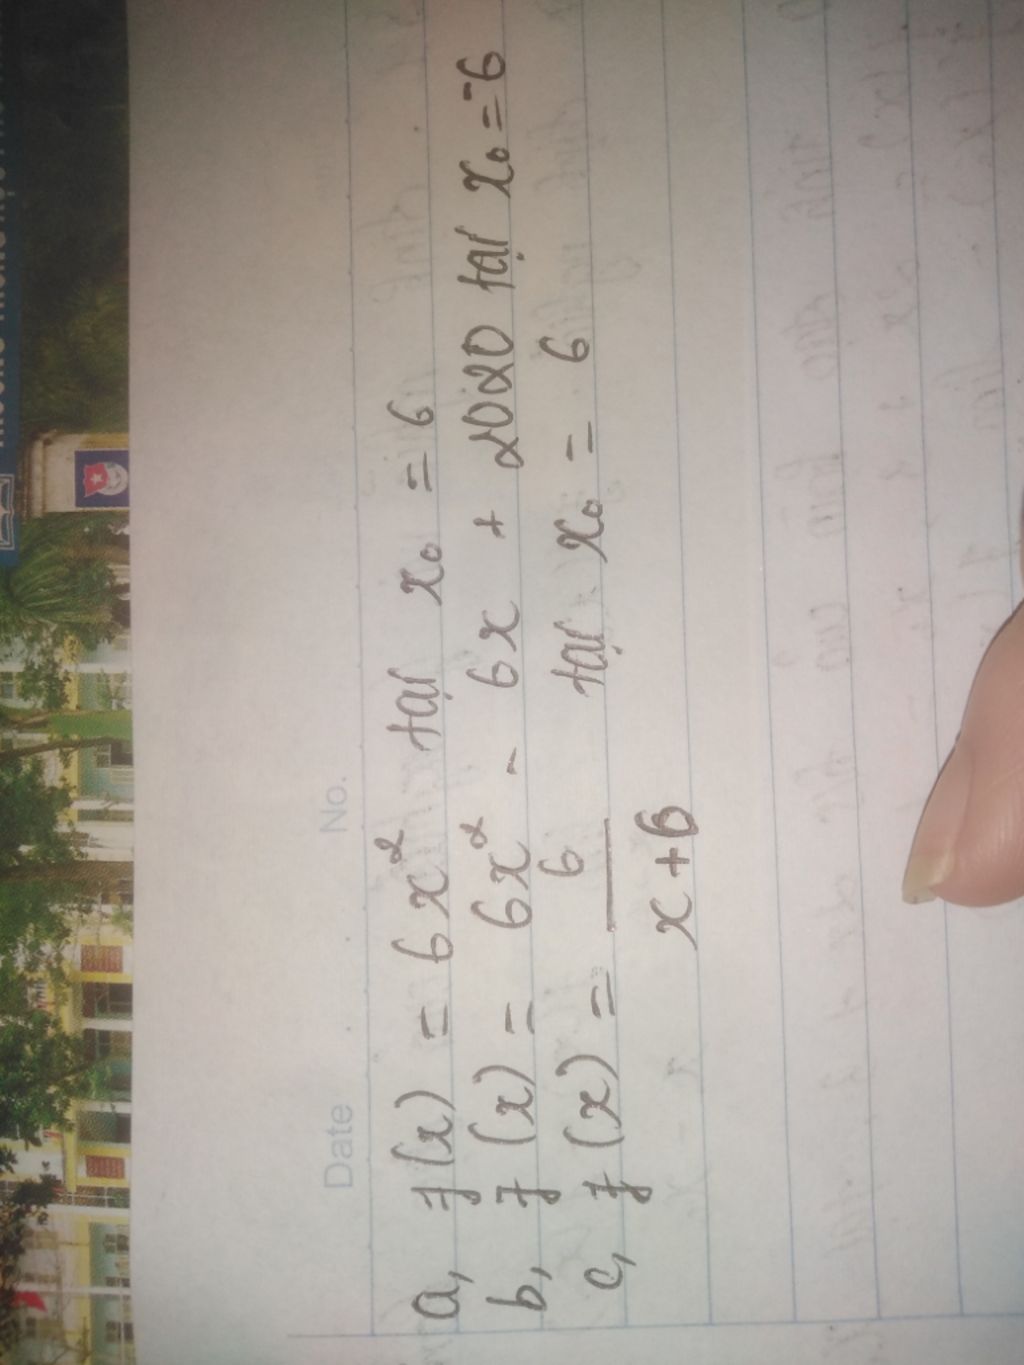 Date No.
a, f(x) = 6x² tại x₀ = 6
b, f(x) = 6x² - 6x + 2020 tại x₀ = -6
c, f(x) = 6/(x+6) tại x₀ = 6